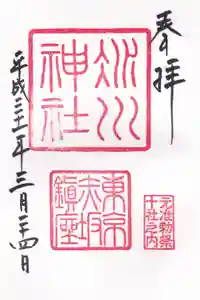 奉拝
氷川神社
元准勅祭
十社之内
東京赤坂鎮座
平成三十一年三月二十四日